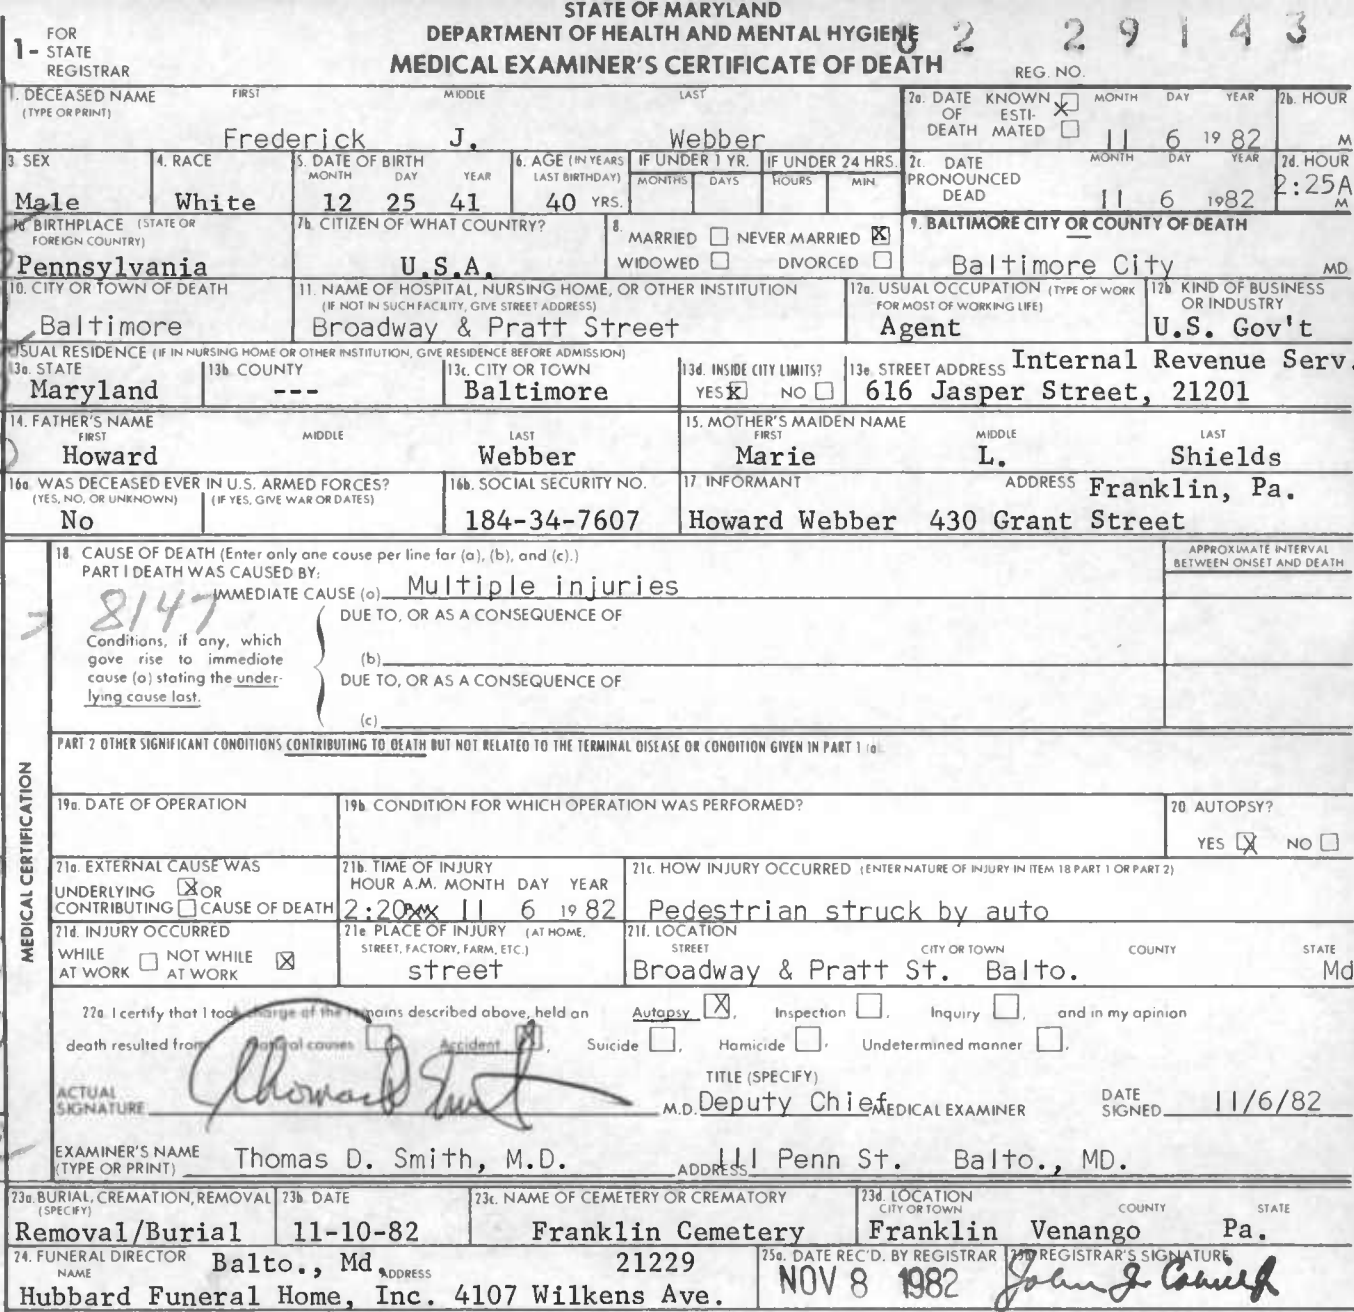 STATE OF MARYLAND
DEPARTMENT OF HEALTH AND MENTAL HYGIENE
MEDICAL EXAMINER'S CERTIFICATE OF DEATH
1- FOR STATE REGISTRAR
82 29143
REG. NO.
1. DECEASED NAME (TYPE OR PRINT) FIRST MIDDLE LAST
Frederick J. Webber
2a. DATE OF DEATH KNOWN ESTIMATED X MONTH DAY YEAR
11 6 1982
2b. HOUR M
3. SEX
Male
4. RACE
White
5. DATE OF BIRTH MONTH DAY YEAR
12 25 41
6. AGE (IN YEARS LAST BIRTHDAY)
40 YRS.
IF UNDER 1 YR. MONTHS DAYS
IF UNDER 24 HRS. HOURS MIN.
2c. DATE PRONOUNCED DEAD MONTH DAY YEAR
11 6 1982
2d. HOUR
2:25A M
BIRTHPLACE (STATE OR FOREIGN COUNTRY)
Pennsylvania
7b. CITIZEN OF WHAT COUNTRY?
U.S.A.
8. MARRIED NEVER MARRIED X
WIDOWED DIVORCED
9. BALTIMORE CITY OR COUNTY OF DEATH
Baltimore City MD.
10. CITY OR TOWN OF DEATH
Baltimore
11. NAME OF HOSPITAL, NURSING HOME, OR OTHER INSTITUTION
(IF NOT IN SUCH FACILITY, GIVE STREET ADDRESS)
Broadway & Pratt Street
12a. USUAL OCCUPATION (TYPE OF WORK FOR MOST OF WORKING LIFE)
Agent
12b. KIND OF BUSINESS OR INDUSTRY
U.S. Gov't
Internal Revenue Serv.
USUAL RESIDENCE (IF IN NURSING HOME OR OTHER INSTITUTION, GIVE RESIDENCE BEFORE ADMISSION)
13a. STATE
Maryland
13b. COUNTY
---
13c. CITY OR TOWN
Baltimore
13d. INSIDE CITY LIMITS?
YES X NO
13e. STREET ADDRESS
616 Jasper Street, 21201
14. FATHER'S NAME FIRST MIDDLE LAST
Howard Webber
15. MOTHER'S MAIDEN NAME FIRST MIDDLE LAST
Marie L. Shields
16a. WAS DECEASED EVER IN U.S. ARMED FORCES?
(YES, NO, OR UNKNOWN) (IF YES, GIVE WAR OR DATES)
No
16b. SOCIAL SECURITY NO.
184-34-7607
17. INFORMANT ADDRESS Franklin, Pa.
Howard Webber 430 Grant Street
MEDICAL CERTIFICATION
18. CAUSE OF DEATH (Enter only one cause per line for (a), (b), and (c).)
PART I DEATH WAS CAUSED BY:
IMMEDIATE CAUSE (a) Multiple injuries
APPROXIMATE INTERVAL BETWEEN ONSET AND DEATH
8147
DUE TO, OR AS A CONSEQUENCE OF
Conditions, if any, which gave rise to immediate cause (a) stating the underlying cause last.
(b)
DUE TO, OR AS A CONSEQUENCE OF
(c)
PART 2 OTHER SIGNIFICANT CONDITIONS CONTRIBUTING TO DEATH BUT NOT RELATED TO THE TERMINAL DISEASE OR CONDITION GIVEN IN PART 1 (a)
19a. DATE OF OPERATION
19b. CONDITION FOR WHICH OPERATION WAS PERFORMED?
20. AUTOPSY?
YES X NO
21a. EXTERNAL CAUSE WAS
UNDERLYING X OR
CONTRIBUTING CAUSE OF DEATH
21b. TIME OF INJURY
HOUR A.M. MONTH DAY YEAR
2:20 11 6 1982
21c. HOW INJURY OCCURRED (ENTER NATURE OF INJURY IN ITEM 18 PART 1 OR PART 2)
Pedestrian struck by auto
21d. INJURY OCCURRED
WHILE AT WORK NOT WHILE AT WORK X
21e. PLACE OF INJURY (AT HOME, STREET, FACTORY, FARM, ETC.)
street
21f. LOCATION
STREET CITY OR TOWN COUNTY STATE
Broadway & Pratt St. Balto. Md
22a. I certify that I took charge of the remains described above, held an Autopsy X, Inspection , Inquiry , and in my opinion
death resulted from Natural causes Accident X, Suicide , Homicide , Undetermined manner .
ACTUAL SIGNATURE Thomas D Smith M.D.
TITLE (SPECIFY)
Deputy Chief MEDICAL EXAMINER
DATE SIGNED 11/6/82
EXAMINER'S NAME (TYPE OR PRINT) Thomas D. Smith, M.D. ADDRESS 111 Penn St. Balto., MD.
23a. BURIAL, CREMATION, REMOVAL (SPECIFY)
Removal/Burial
23b. DATE
11-10-82
23c. NAME OF CEMETERY OR CREMATORY
Franklin Cemetery
23d. LOCATION CITY OR TOWN COUNTY STATE
Franklin Venango Pa.
24. FUNERAL DIRECTOR NAME ADDRESS
Balto., Md 21229
Hubbard Funeral Home, Inc. 4107 Wilkens Ave.
25a. DATE REC'D. BY REGISTRAR
NOV 8 1982
25b. REGISTRAR'S SIGNATURE